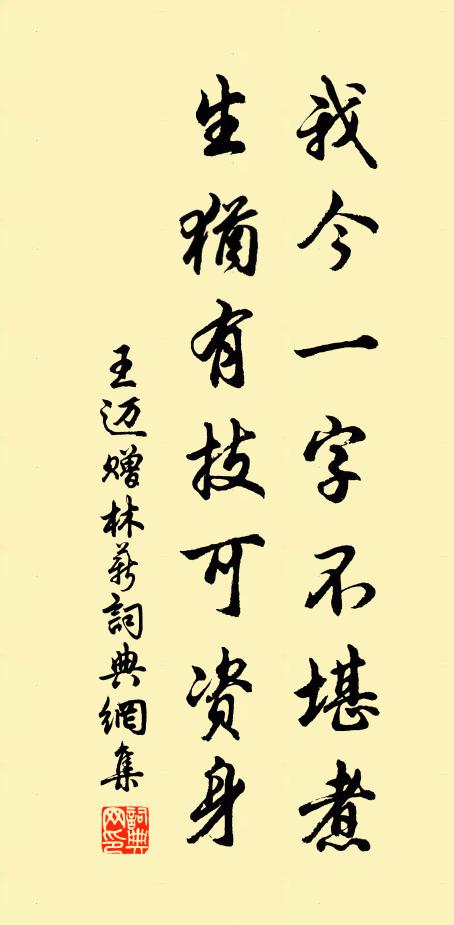 我今一字不堪煮
生猶有技可資身
王迈贈林薪詞典網集
詞典
网印